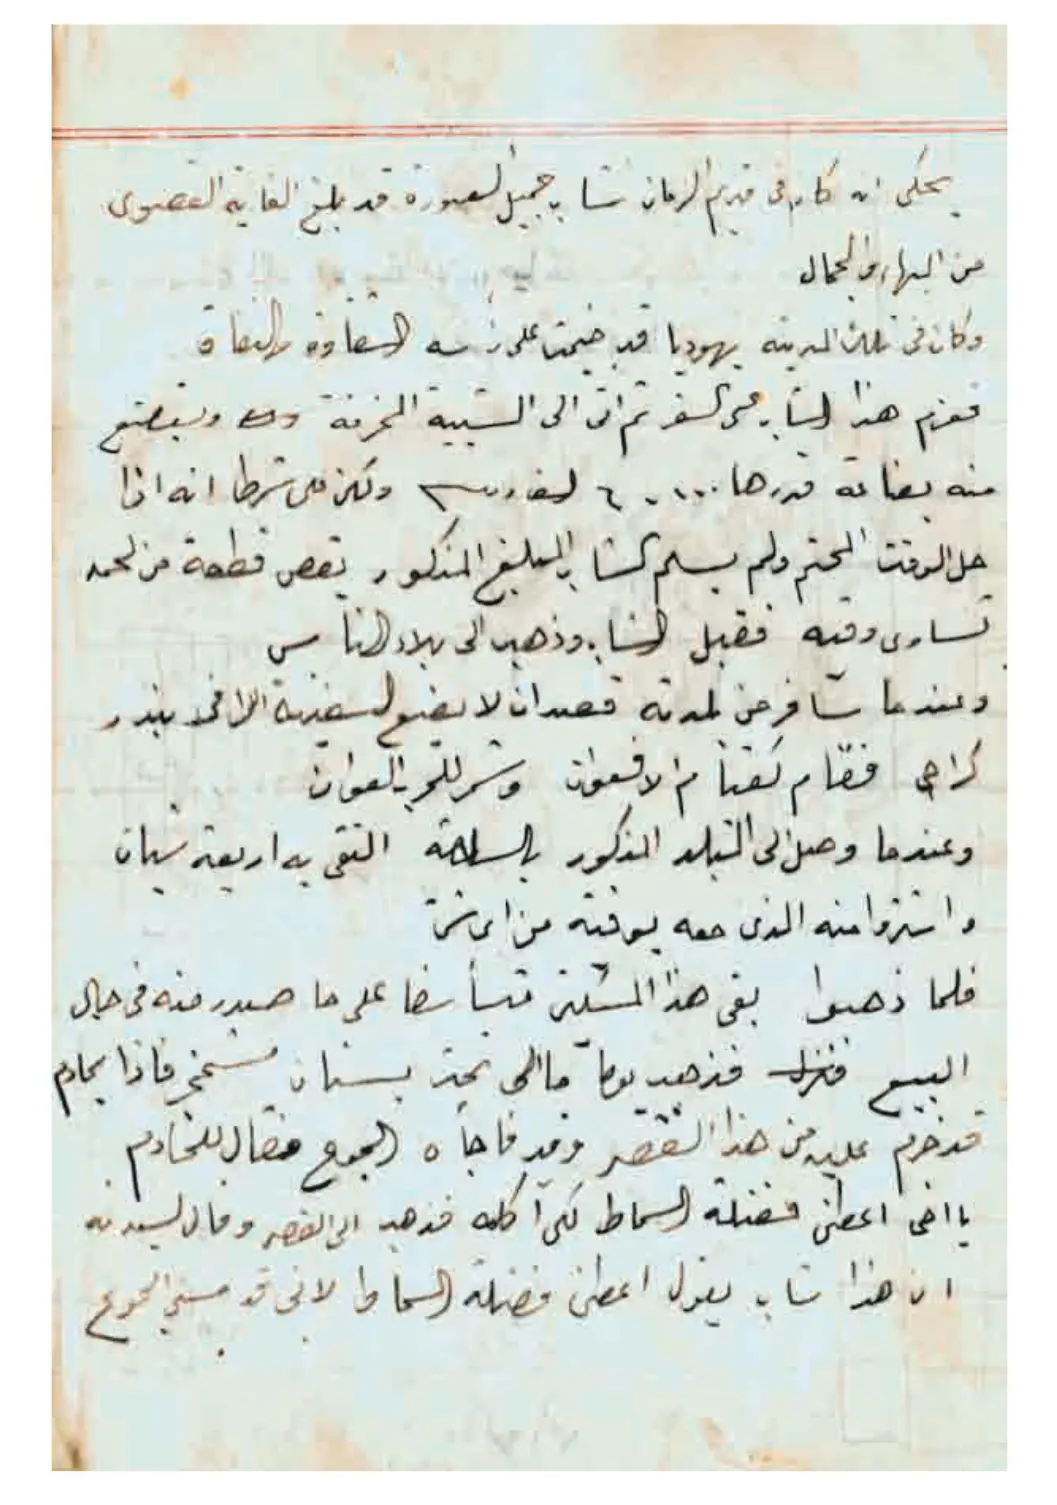 يحكى انه كان في قديم الزمان شاب جميل الصورة قد بلغ الغاية القصوى
من البهاء والجمال
وكان في تلك المدينة يهوديا قد خيمت على رأسه الشقاوة
فعزم هذا الشاب على السفر ثم اتى الى
منه بضاعة قدرها ولكن على شرط انه اذا
حل الوقت المحتم ولم يسلم الشاب المبلغ المذكور يقص قطعة من لحمه
تساوى وقيه فقبل الشاب وذهب الى بلاد الناس
وعندما سافر من بلدته قصد ان لا يضع السفينة الا في بندر
كراجى فقام
وعندما وصل الى البلد المذكور بالسلامة التقى به اربعة شبان
واشتروا منه الذى معه بوقته من اى شئ
فلما ذهبوا بقى هذا المسكين متأسفا على ما صدر منه في حال
البيع فنزل فذهب يوما ما الى تحت بستان فاذا بخادم
قد خرج عليه من هذا القصر وقد فاجأه الجوع فقال للخادم
يا اخى اعطنى فضلة السماط لكى آكله فذهب الى القصر وقال لسيدته
ان هذا شاب يقول اعطنى فضلة السماط لانى قد مسنى الجوع